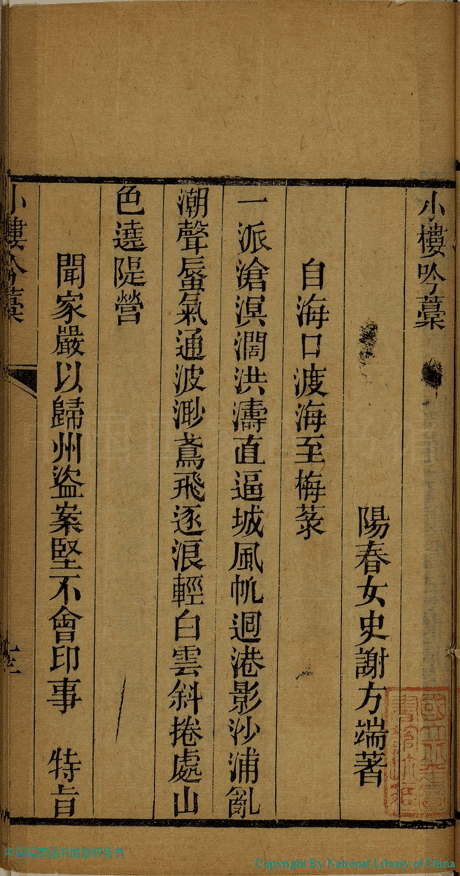 小樓吟藁
陽春女史謝方端著
自海口渡海至梅菉
一派滄溟濶洪濤直逼城風帆迴港影沙浦亂
潮聲蜃氣通波渺鳶飛逐浪輕白雲斜捲處山
色遶隄營
聞家嚴以歸州盜案堅不會印事 特旨
小樓吟藁
Copyright By National Library of China